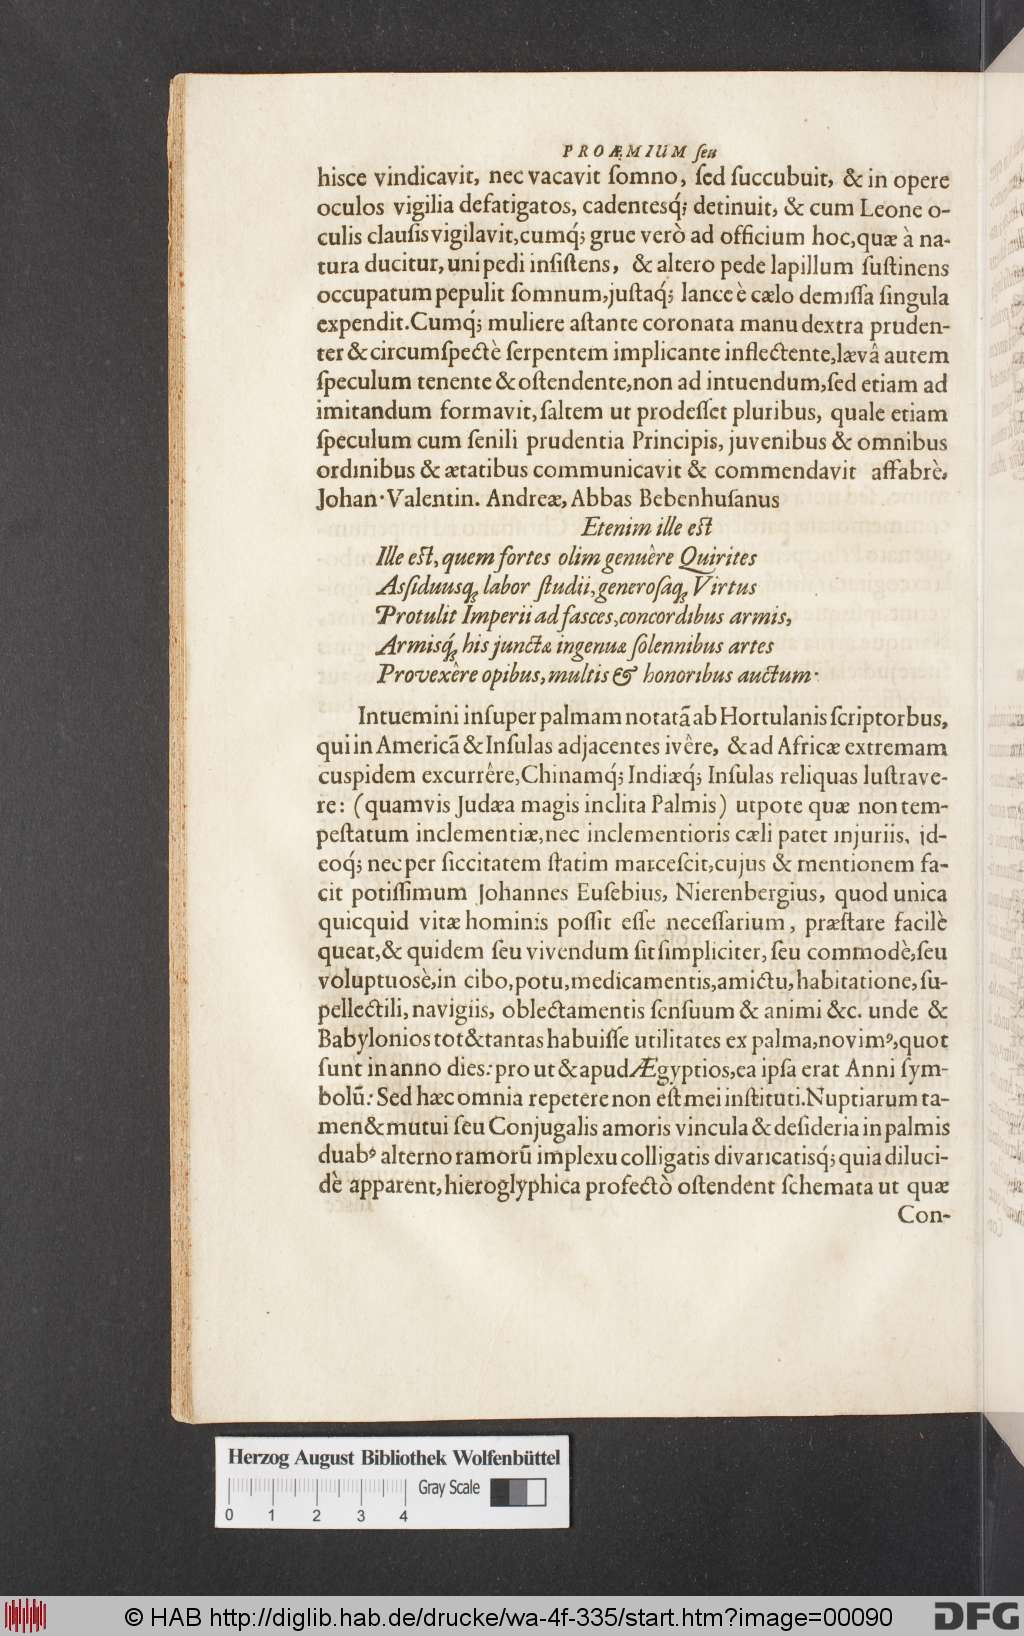 PROÆMIUM ſeu
hisce vindicavit, nec vacavit ſomno, ſed ſuccubuit, & in opere
oculos vigilia defatigatos, cadentesq́; detinuit, & cum Leone o-
culis clauſis vigilavit, cumq́; grue verò ad officium hoc, quæ à na-
tura ducitur, uni pedi inſiſtens, & altero pede lapillum ſuſtinens
occupatum pepulit ſomnum, juſtaq́; lance è cælo demiſſa ſingula
expendit. Cumq́; muliere aſtante coronata manu dextra pruden-
ter & circumſpectè ſerpentem implicante inflectente, lævâ autem
ſpeculum tenente & oſtendente, non ad intuendum, ſed etiam ad
imitandum formavit, ſaltem ut prodeſſet pluribus, quale etiam
ſpeculum cum ſenili prudentia Principis, juvenibus & omnibus
ordinibus & ætatibus communicavit & commendavit affabrè,
Johan. Valentin. Andreæ, Abbas Bebenhuſanus
Etenim ille eſt
Ille eſt, quem fortes olim genuêre Quirites
Aſsiduusq; labor ſtudii, generoſaq; Virtus
Protulit Imperii ad faſces, concordibus armis,
Armisq́; his junctæ ingenuæ ſolennibus artes
Provexêre opibus, multis & honoribus auctum.
Intuemini inſuper palmam notatã ab Hortulanis ſcriptorbus,
qui in Americã & Inſulas adjacentes ivêre, & ad Africæ extremam
cuspidem excurrêre, Chinamq́; Indiæq́; Inſulas reliquas luſtrave-
re: (quamvis Judæa magis inclita Palmis) utpote quæ non tem-
peſtatum inclementiæ, nec inclementioris cæli patet injuriis, id-
eoq́; nec per ſiccitatem ſtatim marceſcit, cujus & mentionem fa-
cit potiſſimum Johannes Euſebius, Nierenbergius, quod unica
quicquid vitæ hominis poſſit eſſe neceſſarium, præſtare facilè
queat, & quidem ſeu vivendum ſit ſimpliciter, ſeu commodè, ſeu
voluptuosè, in cibo, potu, medicamentis, amictu, habitatione, ſu-
pellectili, navigiis, oblectamentis ſenſuum & animi &c. unde &
Babylonios tot & tantas habuiſſe utilitates ex palma, novimꝰ, quot
ſunt in anno dies: pro ut & apud Ægyptios, ea ipſa erat Anni ſym-
bolũ: Sed hæc omnia repetere non eſt mei inſtituti. Nuptiarum ta-
men & mutui ſeu Conjugalis amoris vincula & deſideria in palmis
duabꝰ alterno ramorũ implexu colligatis divaricatisq́; quia diluci-
dè apparent, hieroglyphica profectò oſtendent ſchemata ut quæ
Con-
Herzog August Bibliothek Wolfenbüttel
Gray Scale
0 1 2 3 4
© HAB http://diglib.hab.de/drucke/wa-4f-335/start.htm?image=00090
DFG